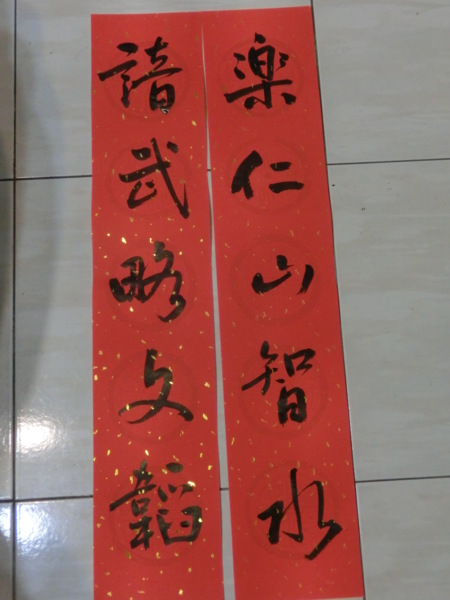 楽仁山智水
諳武略文韜